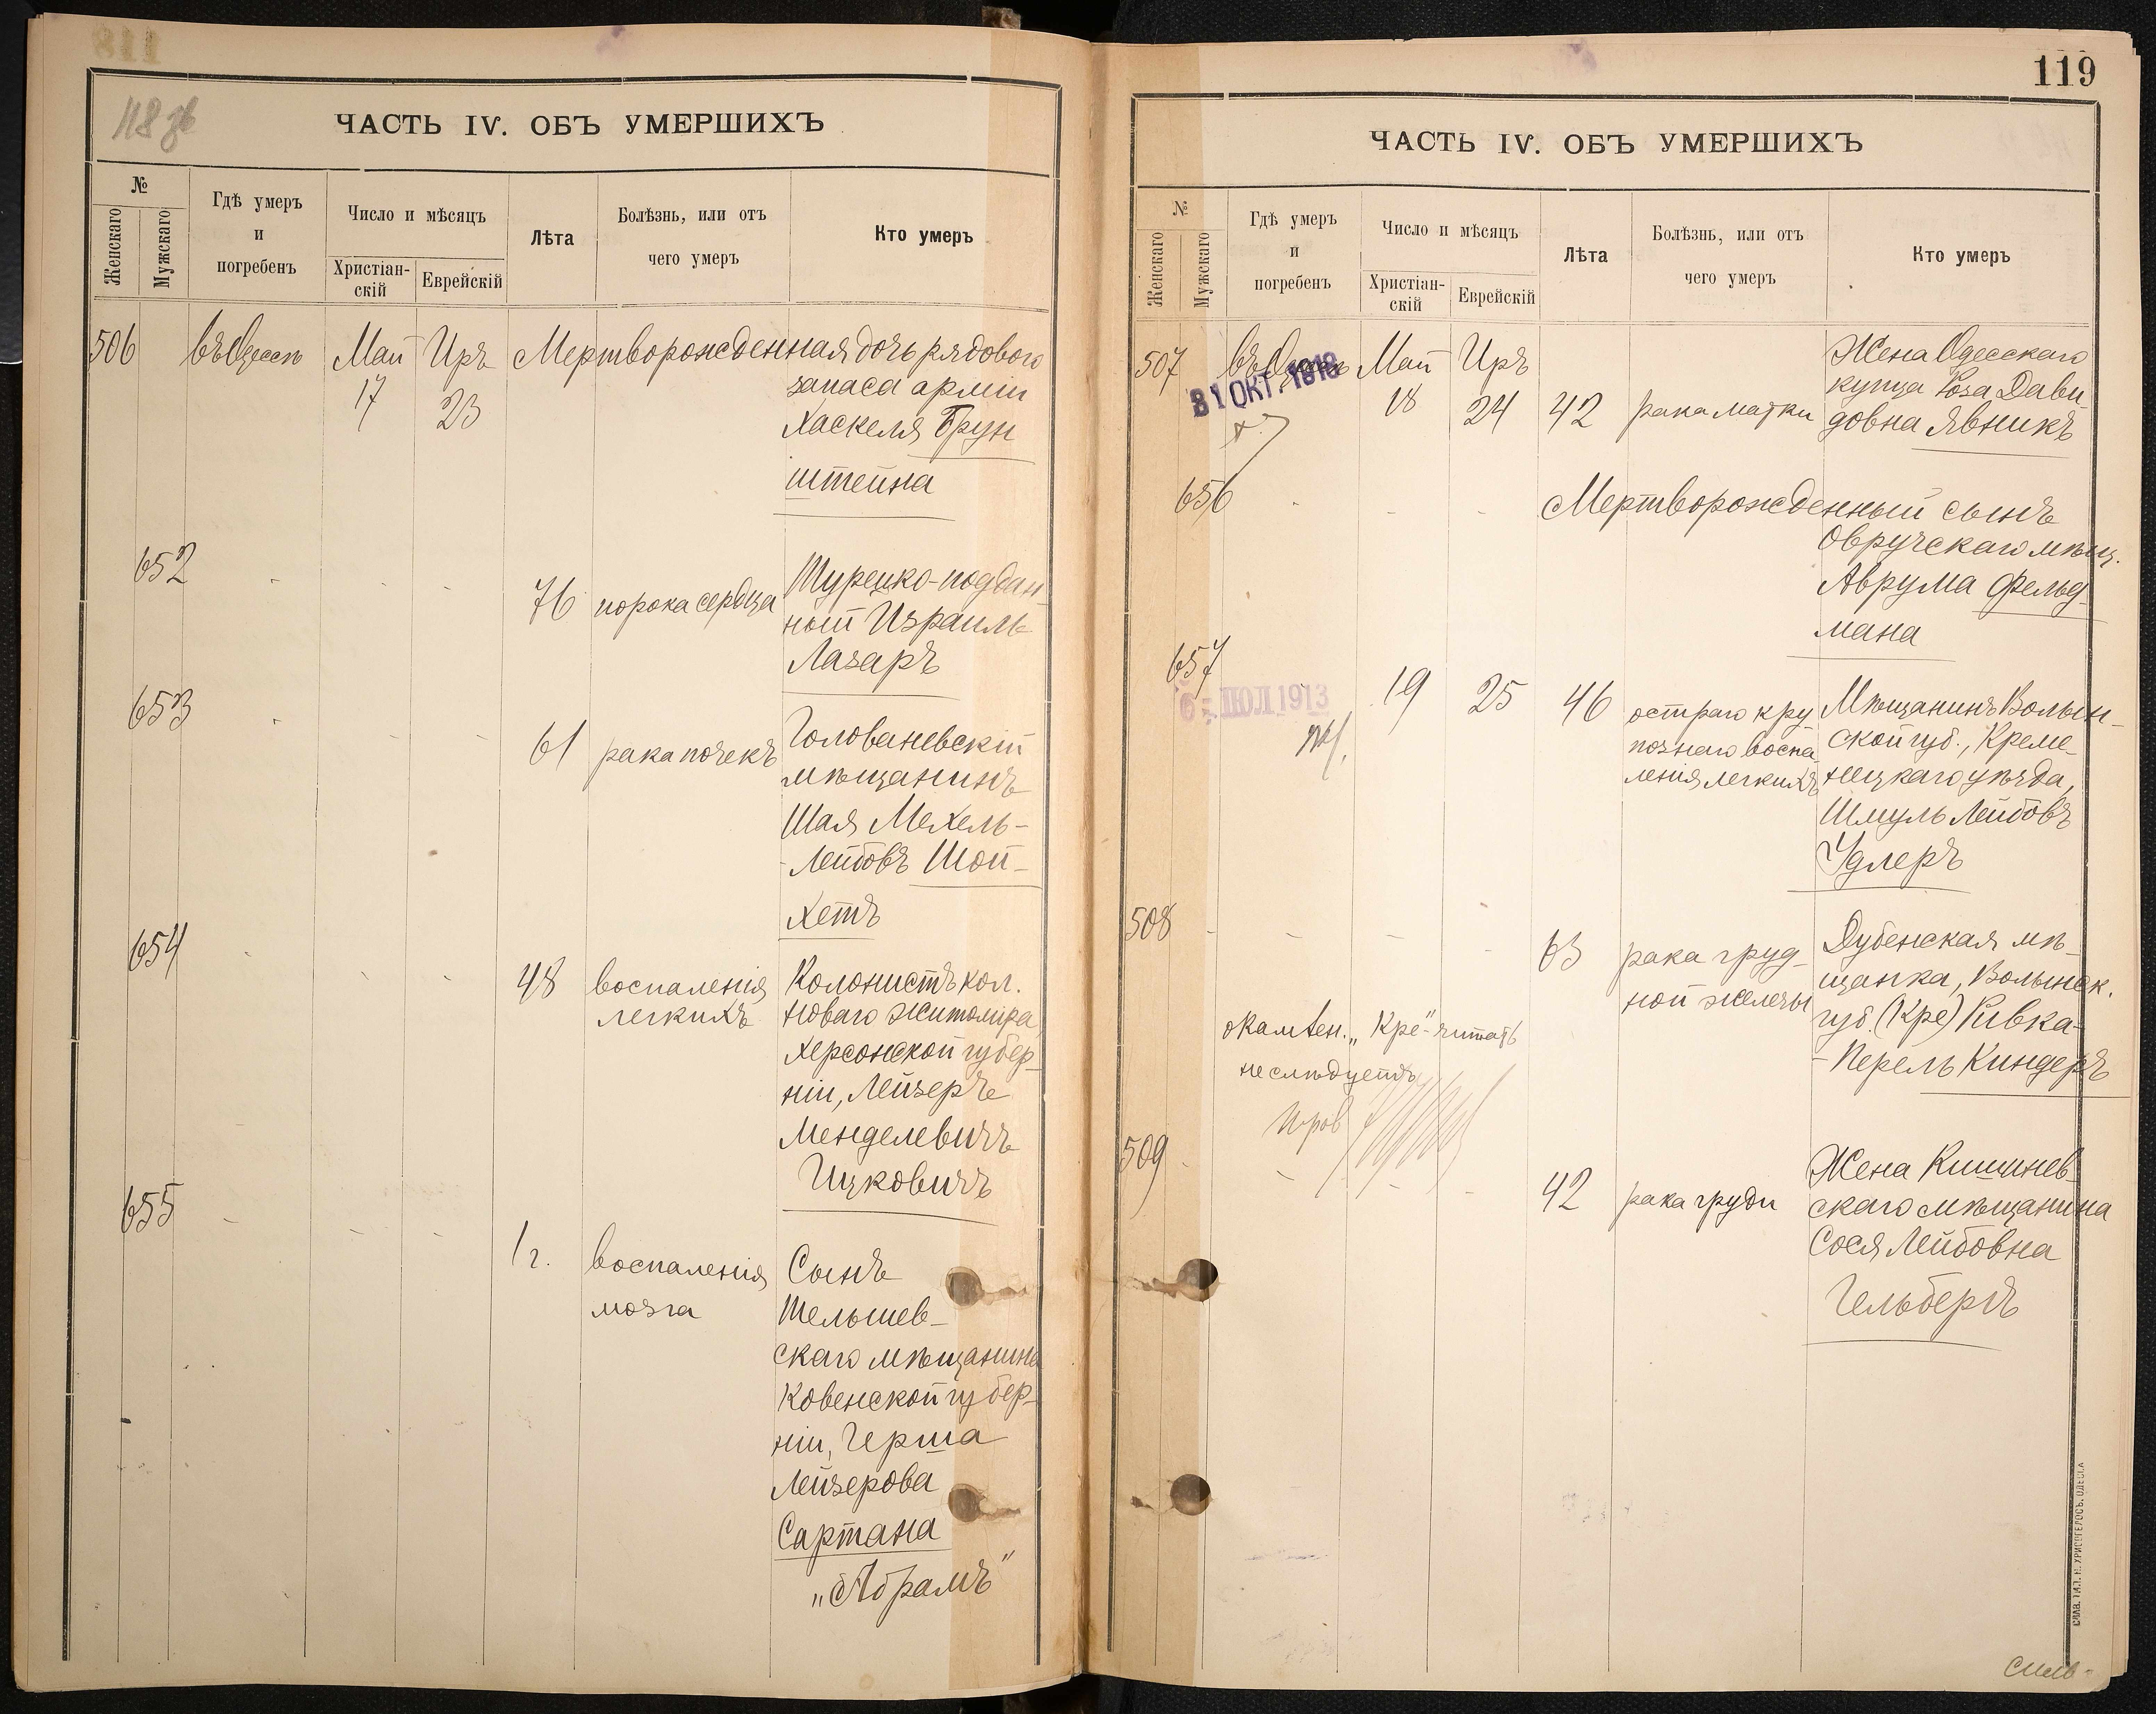 118 зв
ЧАСТЬ IV. ОБЪ УМЕРШИХЪ
№
Женскаго
Мужскаго
Гдѣ умеръ
и
погребенъ
Число и мѣсяцъ
Христіан-
скій
Еврейскій
Лѣта
Болѣзнь, или отъ
чего умеръ
Кто умеръ
506 въ Одессѣ Май Иръ Мертворожденная дочь рядового
17 23 запаса арміи
Хаскеля Брун
штейна
652
76 порока сердца Турецко-поддан
ный Израиль
Лазаръ
653
61 рака почекъ Голованевскій
мѣщанинъ
Шая Мехель-
-Лейбовъ Шой-
хетъ
654
48 воспаленія Колонистъ кол.
легкихъ Новаго Житоміра,
Херсонской губер-
ніи, Лейзеръ
Менделевичъ
Ицковичъ
655
1 г. воспаленія Сынъ
мозга Тельшев-
скаго мѣщанина
Ковенской губер-
ніи, Герша
Лейзерова
Сартана
„Абрамъ"
119
ЧАСТЬ IV. ОБЪ УМЕРШИХЪ
№
Женскаго
Мужскаго
Гдѣ умеръ
и
погребенъ
Число и мѣсяцъ
Христіан-
скій
Еврейскій
Лѣта
Болѣзнь, или отъ
чего умеръ
Кто умеръ
507 въ Одессѣ Май Иръ Жена Одесскаго
31 ОКТ. 1918
18 24 42 рака матки купца Роза Дави
довна Явникъ
656 Мертворожденный сынъ
Овручскаго мѣщ.
Аврума Фельд-
мана
657
6 ИЮЛ 1913
19 25 46 остраго кру Мѣщанинъ Волын-
познаго воспа- ской губ., Креме-
ленія легкихъ нецкаго уѣзда,
Шмуль Лейбовъ
Удлеръ
508
63 рака груд- Дубенская мѣ-
ной железы щанка, Волынск.
губ. (Кре) Ривка-
-Перель Киндеръ
„Кре"- читать
не слѣдуетъ
509
42 рака груди Жена Кишинев-
скаго мѣщанина
Сося Лейбовна
Гельбергъ